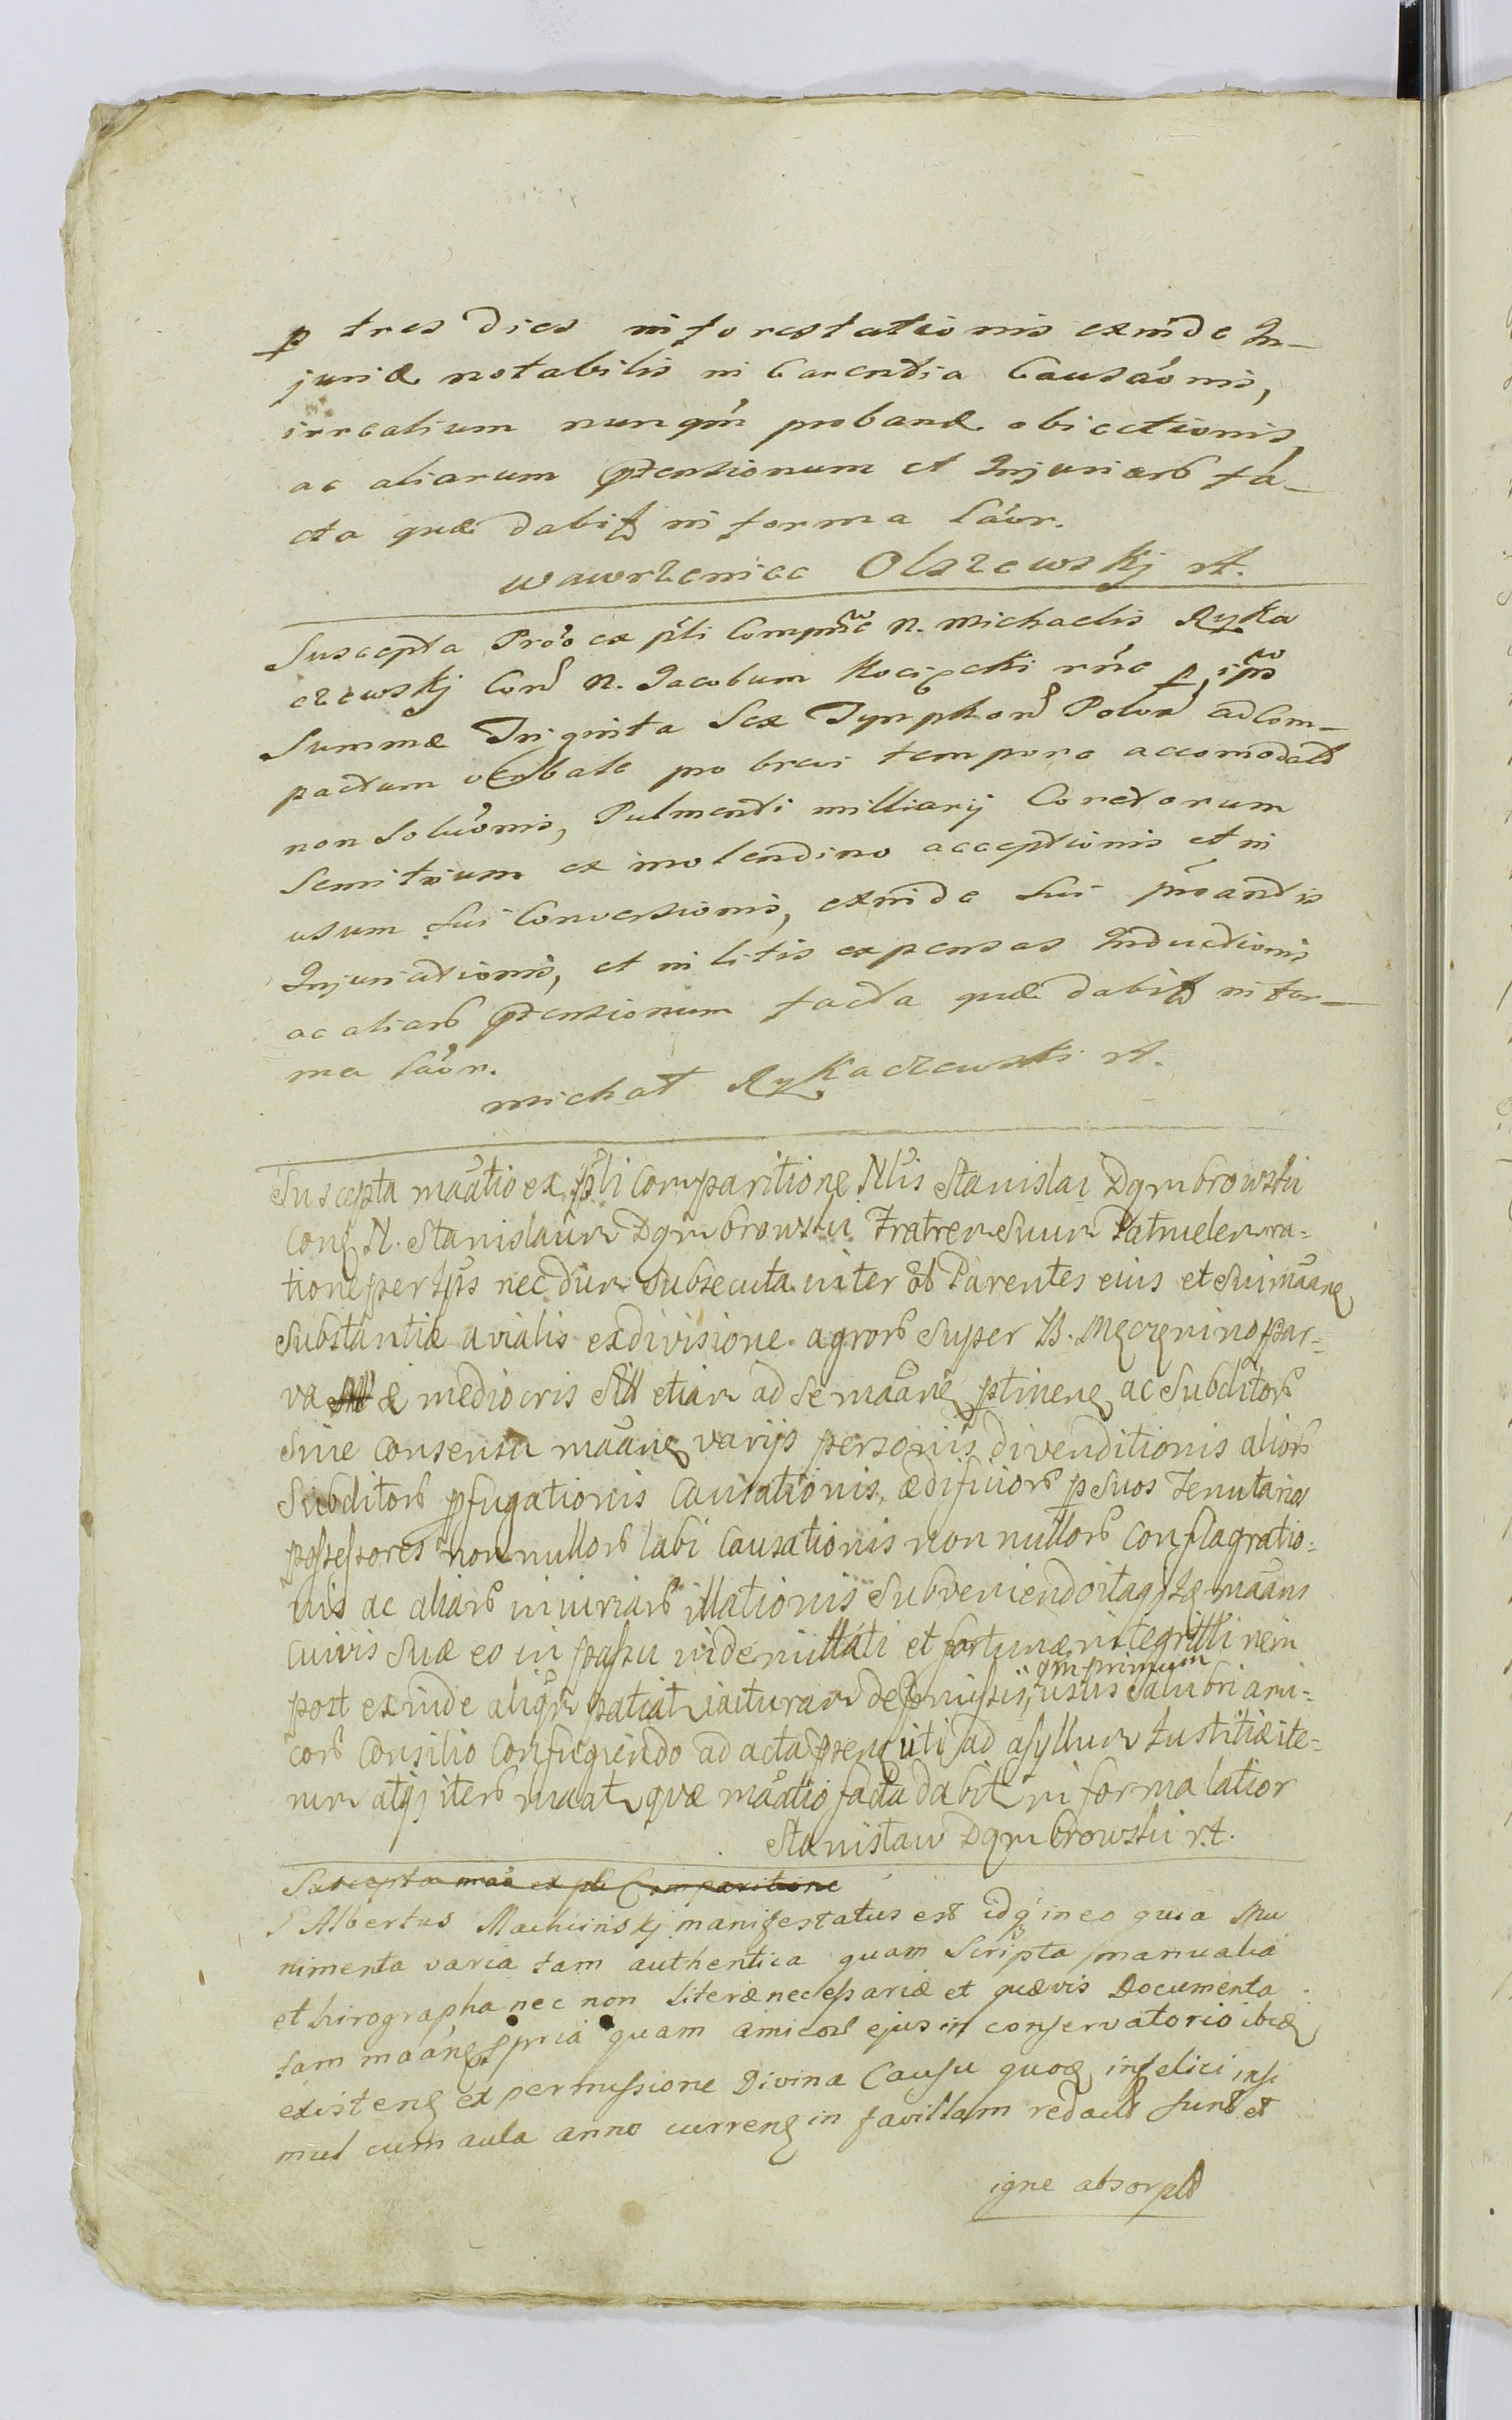 p tres dies infortestationis exinde In-
juriæ notabilis in Carentia Causaónis,
irrealium nunqm̃ probandæ obiectionis,
ac aliarum prætensionum et Injuriarũ fa-
cta quæ dabitꝛ in forma Laór.
wawrzeniec Olszewskj rA.
Suscepta Prõo ex pľi Comp N. Michaelis Ryka
czewskj Con N. Jacobum Kocięcki rñe p ipm̃
Summæ Triginta Sex Tymphorũ Polon ad Com-
pactum verbale pro brevi tempore accomodatæ
non Soluónis, Pulmenti milliarij Coretorum
Semitrium ex molendino acceptionis et in
usum Sui Conversionis, exinde Sui prõantis
Injuriationis, et in litis expensas Inductionis
ac aliarũ prætensionum facta quæ dabitꝛ in for-
ma Laór.
Michał Rykaczewski rA.
Suscepta maãtio ex pľi Comparitione Nľis Stanislai Dąmbrowski
Cong N. Stanislaum Dąmbrowski Fratrem Suum Patruelem ra-
tione per Ipũs necdum Subsecuta inter ob Parentes eius et Sui maãne
Substantiæ avialis exdivisione agrorũ Super B. Męczenino par-
va æ mediocris Sed etiam ad se maãne ptinene ac Subditorũ
Sine Consensu maãne varijs personis divenditionis aliorũ
Subditorũ pfugationis Causationis, ædificiorũ p Suos Tenutarios
possessores nonnullorũ labi Causationis non nullorũ Conflagratio-
nis ac aliarũ iniuriarũ illationis Subveniendo itaq Iże maãns
Cuivis Suæ eo in passu indemnittati et fortunæ integritti nem̃
post exinde aliqm̃ patiatꝛ iacturam de præmissis, qm̃ primum usus Salubri ami-
corũ Consilio Confugiendo ad acta præns uti ad asyllum Iustitiæ ite-
rum atq iterũ maatꝛ quæ maãtio facta dabitꝛ in forma latior
Stanisław Dąmbrowski r.A.
Suscepta maã ex pľi Comparitione
G Albertus Machcinskj manifestatus est idq in eo quia Mu
nimenta varia tam authentica quam Scripta manualia
et hirographa nec non literæ necessariæ et quævis Documenta
tam maãne ppria quam amicorũ ejus in conservatorio ibid
existene ex permissione Divina Casu quoq infelici insi
mul cum aula anno currene in favillam redacta sunt et
igne absorpta